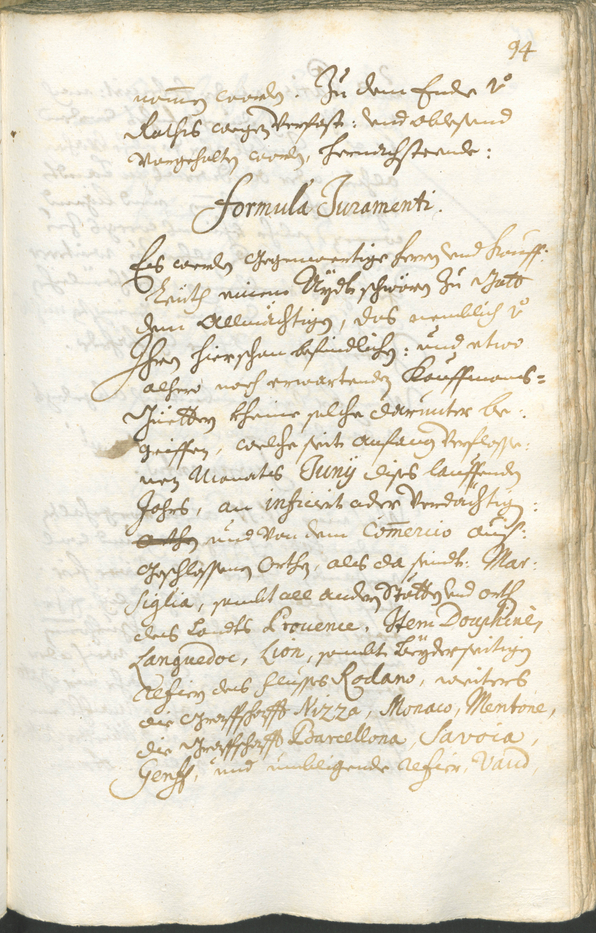 94
nommen werden. Zu dem Ende v̊
Raths wegen Verfast: und ablesend
Vorgehalten worden, hernachsteende:
formula Juramenti.
Es werden gegenwertige herren und Kauff:
Leüth einen Aydt schwören zu Gott
dem Allmächtigen, das nemblich v̊
Ihren hierschon befindlichen: und etwo
alhero noch erwartenden Kauffmans=
Güettern kheine solche darunter be:
greiffen, welche seit anfang Verflosse:
nen Monats Junÿ diss lauffenden
Jahrs, an inficirt oder Verdächtigen:
orthen und Von dem Commercio auss:
geschlossenen Orthen, als da seindt: Mar:
siglia, sambt all andern Stätten und orth
des Landts Provence, Item Douphinè,
Languedoc, Lion, sambt beyderseitigen
des flusses Rodano, weiters
die Graffschafft Nizza, Monaco, Mentone,
die Graffschafft Barcellona, Savoia,
Genff, und umbligende Vaud,